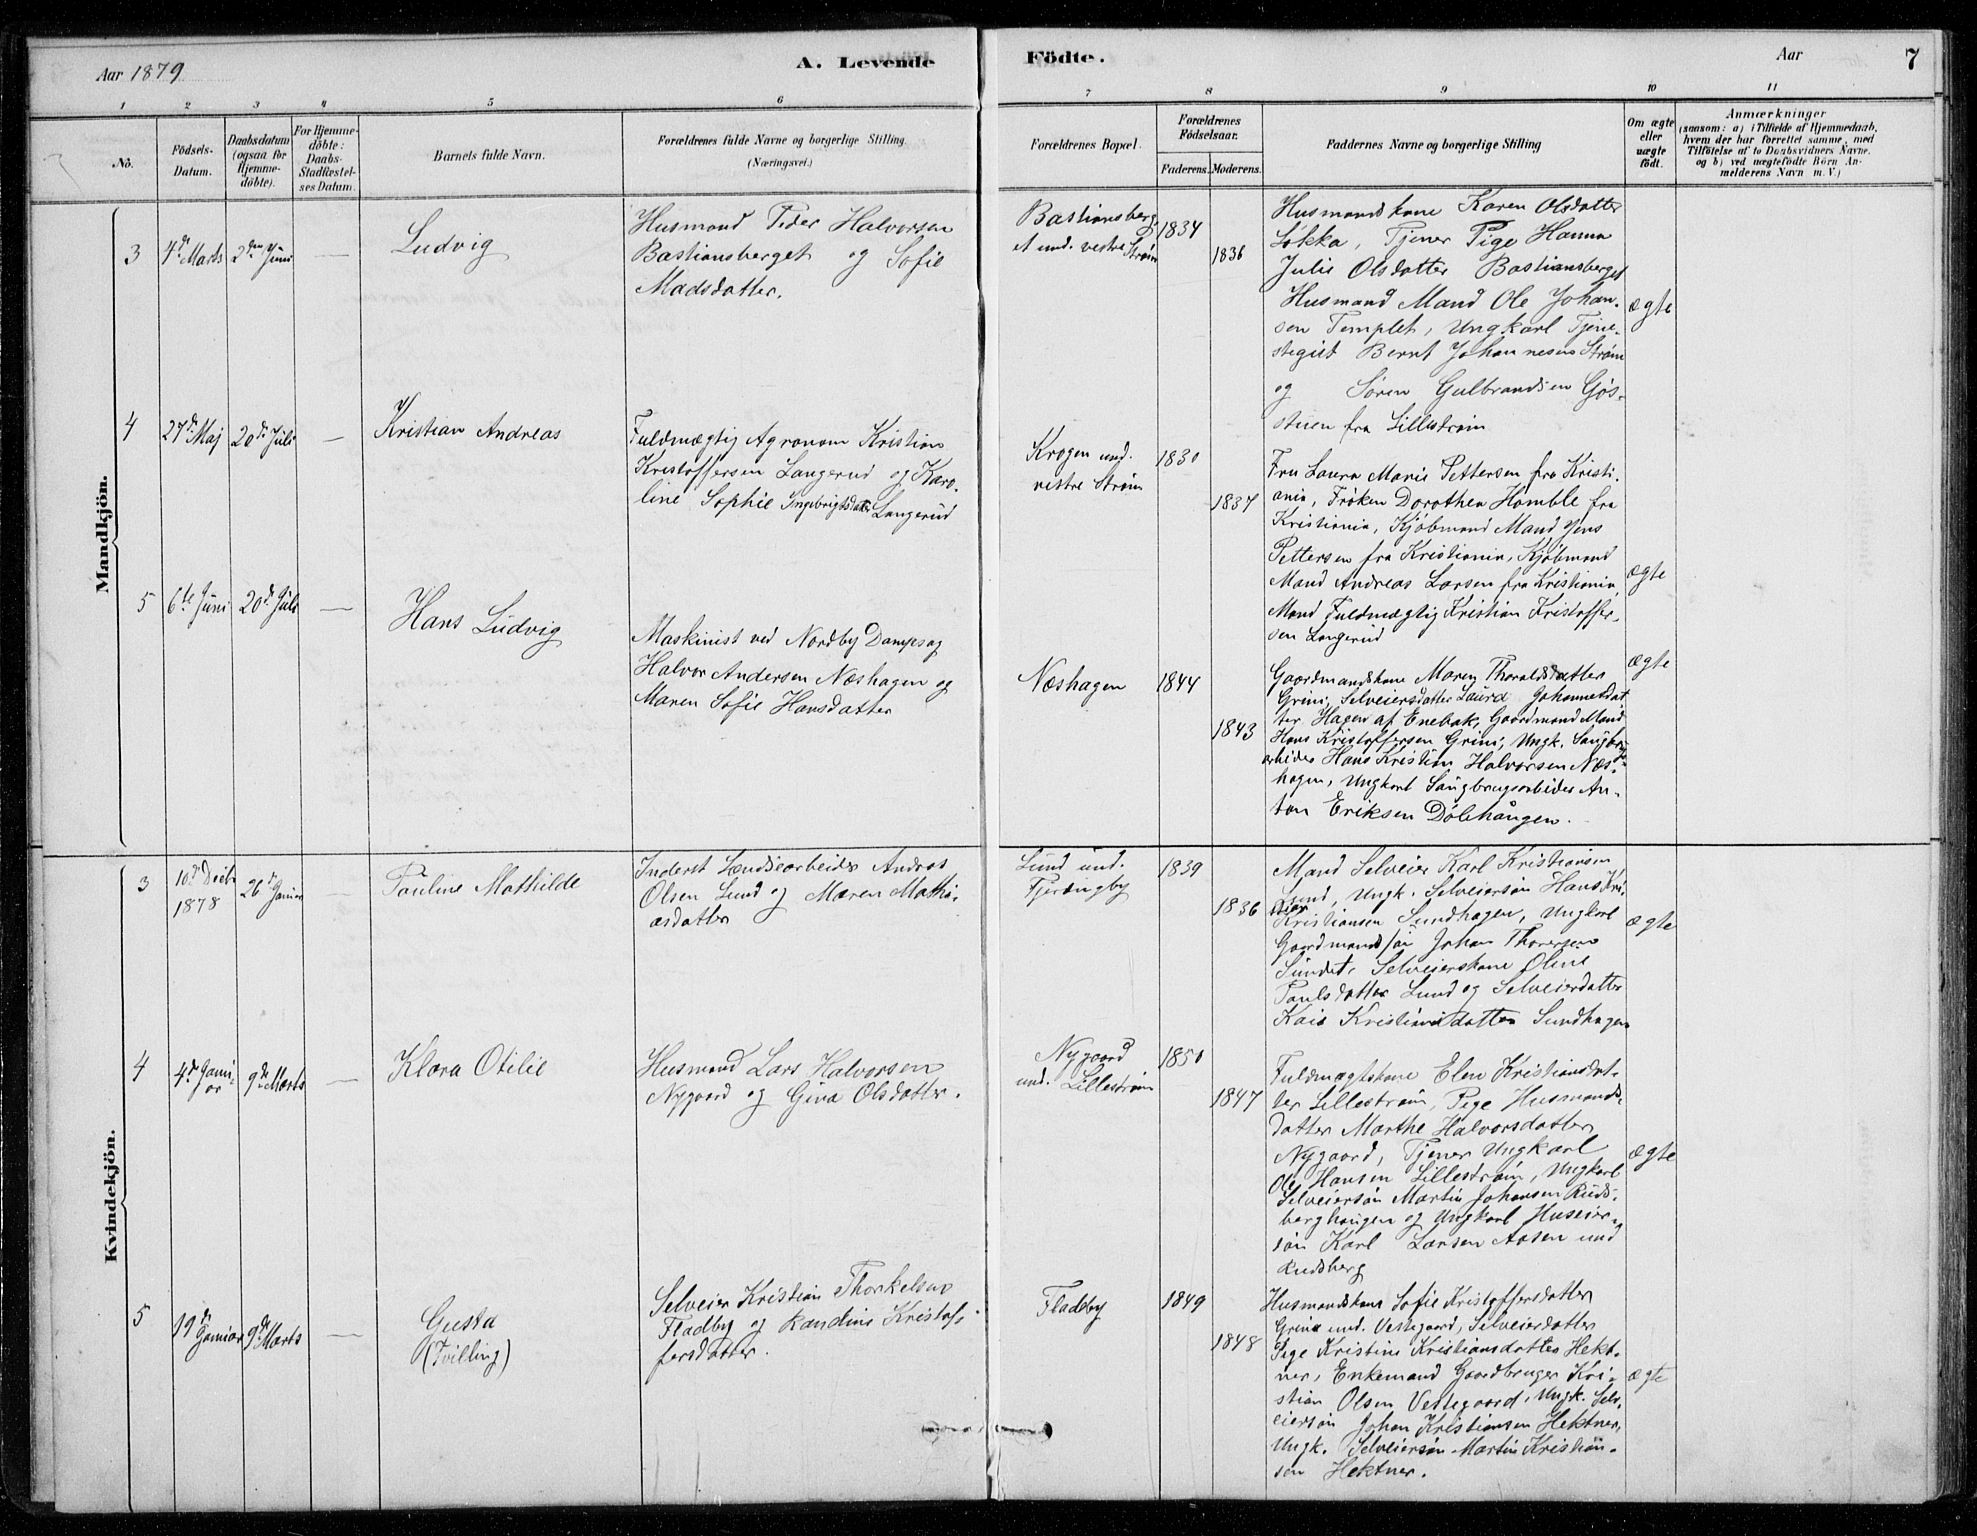 Aar 1879
A. Levende
Födte.
Aar
7
1
2
3
4
5
6
7
8
9
10
11
No.
Födsels-
Datum.
Daabsdatum
(ogsaa for
Hjemme-
döbte).
For Hjemme-
döbte:
Daabs-
Stadfæstel-
ses Datum.
Barnets fulde Navn.
Forældrenes fulde Navne og borgerlige Stilling
(Næringsvei.)
Forældrenes Bopæl.
Forældrenes
Födselsaar.
Faderens.
Moderens.
Faddernes Navne og borgerlige Stilling
Om ægte
eller
uægte
födt.
Anmærkninger
(saasom: a) i Tilfælde af Hjemmedaab,
hvem der har forrettet samme, med
Tilföielse af to Daabsvidners Navne.
og b) ved uægtefödte Börn An-
melderens Navn m. V.)
Mandkjön.
3
4de Marts
2den Juni
Ludvig
Husmand Peder Halvorsen
Bastiansberget og Sofie
Madsdatter.
Bastiansberg
et und. vestre Strøm
1834
1836
Husmandskone Karen Olsdatter
Løkka, Tjener Pige Hanna
Julie Olsdatter Bastiansberget
Husmand Mand Ole Johan-
sen Templet, Ungkarl Tjene-
stegut Bernt Johannesen Strøm
og Søren Gulbrandsen Gjøs-
stuen fra Lillestrøm
ægte
4
27de Maj
20de Juli
Kristian Andreas
Fuldmægtig Agronom Kristian
Kristoffersen Langerud og Karo-
line Sophie Ingebrigtsdatter Langerud
Krogen und.
vestre Strøm
1830
1837
Fru Laura Marie Pettersen fra Kristi-
ania, Frøken Dorothea Homble fra
Kristiania, Kjøbmand Mand Jens
Pettersen fra Kristiania, Kjøbmand
Mand Andreas Larsen fra Kristiania,
Mand Fuldmægtig Kristian Kristoffer-
sen Langerud
ægte
5
6te Juni
20de Juli
Hans Ludvig
Maskinist ved Nordby Dampsag
Halvor Andersen Næshagen og
Maren Sofie Hansdatter
Næshagen
1844
1843
Gaardmandskone Maren Thoraldsdatter
Grini, Selveiersdatter Laura Johannesdat
ter Hagen af Enebak, Gaardmand Mand
Hans Kristoffersen Grini, Ungk. Saugbrugs
arbeider Hans Kristian Halvorsen Næs-
hagen, Ungkarl Saugbrugsarbeider An-
ton Eriksen Dølehaugen.
ægte
Kvindekjön.
3
10de Decbr
1878
26de Januar
Pauline Mathilde
Inderst Lændsearbeider Andreas
Olsen Lund og Maren Mathi-
asdatter
Lund und.
Fjerdingby
1839
1836
Mand Selveier Karl Kristiansen
Lund, Ungk. Selveiersøn Hans Kri-
stian
Kristiansen Sundhagen, Ungkarl
Gaardmandssøn Johan Thoresen
Sundet, Selveierskone Oline
Paulsdatter Lund og Selveierdatter
Kaia Kristiansdatter Sundhagen
ægte
4
4de Janu-
ar
9de Marts
Klara Otilie
Husmand Lars Halvorsen
Nygaard og Gina Olsdatter.
Nygaard
und. Lillestrøm
1850
1847
Fuldmægtskone Elen Kristiansdat-
ter Lillestrøm, Pige Husmands-
datter Marthe Halvorsdatter
Nygaard, Tjener Ungkarl
Ole Hansen Lillestrøm, Ungkarl
Selveiersøn Martin Johansen Ruds-
berghaugen og Ungkarl Huseier-
søn Karl Larsen Aasen und
Rudsberg
ægte
5
19de
Januar
9de Marts
Gusta
(Tvilling)
Selveier Kristian Thorkelsen
Fladby og Randine Kristof-
fersdatter.
Fladby
1849
1848
Husmandskone Sofie Kristoffersdatter
Grina und. Vestegaard, Selveierdatter
Pige Kristine Kristiansdatter Hekt-
ner, Enkemand Gaardbruger Kri-
stian Olsen Vestegaard, Ungk. Selv-
eiersøn Johan Kristiansen Hektner,
Ungk. Selveiersøn Martin Kristian-
sen Hektner.
ægte